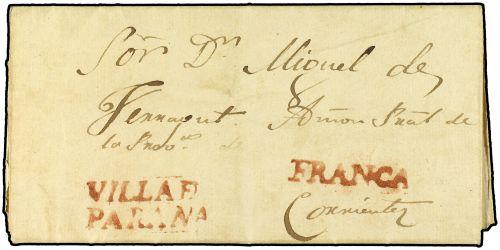 Sor. Dn. Miguel de
Ferragut. Admor. Pral de
la Prova. de
VILLA D FRANCA
PARANA Corrientes